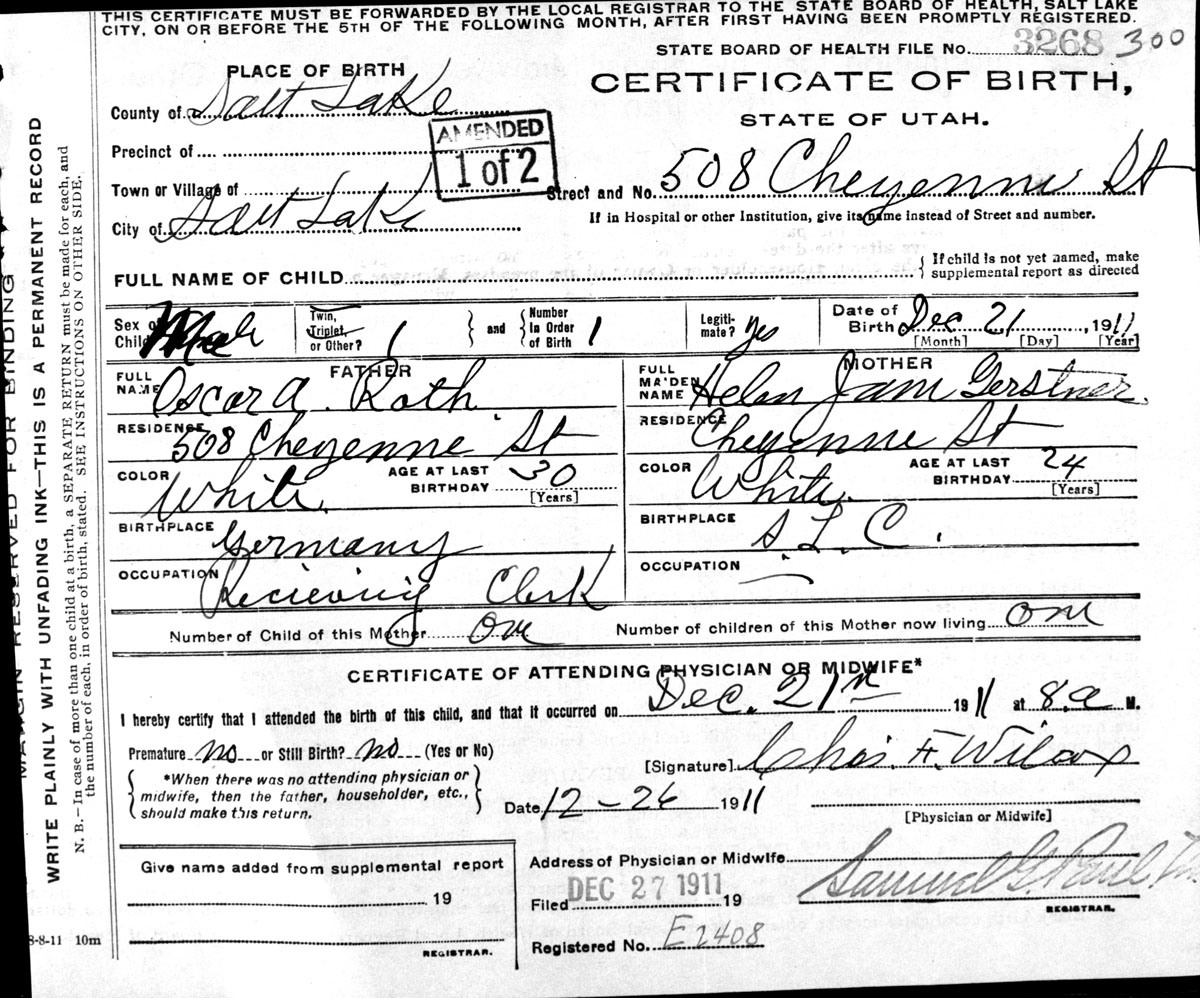 THIS CERTIFICATE MUST BE FORWARDED BY THE LOCAL REGISTRAR TO THE STATE BOARD OF HEALTH, SALT LAKE
CITY, ON OR BEFORE THE 5TH OF THE FOLLOWING MONTH, AFTER FIRST HAVING BEEN PROMPTLY REGISTERED.
STATE BOARD OF HEALTH FILE No. 3268 300
PLACE OF BIRTH
CERTIFICATE OF BIRTH,
STATE OF UTAH.
County of Salt Lake
AMENDED
1 of 2
Precinct of
Town or Village of
Street and No. 508 Cheyenne St
City of Salt Lake
If in Hospital or other Institution, give its name instead of Street and number.
FULL NAME OF CHILD
{ If child is not yet named, make
supplemental report as directed
Sex of Child Male
Twin, Triplet, or Other? 1
and
Number In Order of Birth 1
Legiti-mate? Yes
Date of Birth Dec 21, 1911
[Month] [Day] [Year]
FATHER
FULL NAME Oscar A. Roth
RESIDENCE 508 Cheyenne St
COLOR White.
AGE AT LAST BIRTHDAY 30
[Years]
BIRTHPLACE Germany
OCCUPATION Recieving Clerk
MOTHER
FULL MAIDEN NAME Helen Gerstner.
RESIDENCE Cheyenne St
COLOR White.
AGE AT LAST BIRTHDAY 24
[Years]
BIRTHPLACE S. L. C.
OCCUPATION
Number of Child of this Mother One
Number of children of this Mother now living One
CERTIFICATE OF ATTENDING PHYSICIAN OR MIDWIFE*
I hereby certify that I attended the birth of this child, and that it occurred on Dec. 21st 1911 at 8.a M.
Premature no or Still Birth? no (Yes or No)
[Signature] Chas. F. Wilcox
*When there was no attending physician or
midwife, then the father, householder, etc.,
should make this return.
Date 12-26 1911
[Physician or Midwife]
Give name added from supplemental report
19
REGISTRAR.
Address of Physician or Midwife
Filed DEC 27 1911 19
Samuel G. Paul
REGISTRAR.
Registered No. E2408
8-8-11 10m
MARGIN RESERVED FOR BINDING
WRITE PLAINLY WITH UNFADING INK—THIS IS A PERMANENT RECORD
N. B.—In case of more than one child at a birth, a SEPARATE RETURN must be made for each, and
the number of each, in order of birth, stated. SEE INSTRUCTIONS ON OTHER SIDE.